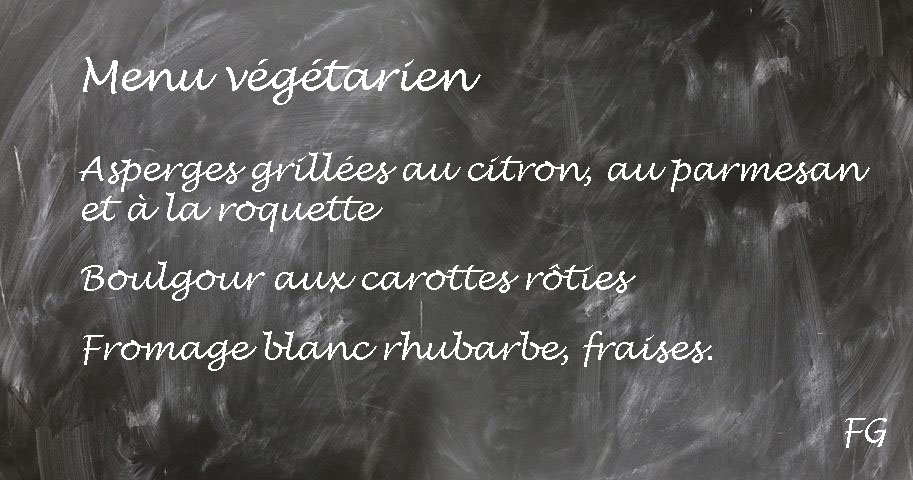 Menu végétarien
Asperges grillées au citron, au parmesan
et à la roquette
Boulgour aux carottes rôties
Fromage blanc rhubarbe, fraises.
FG